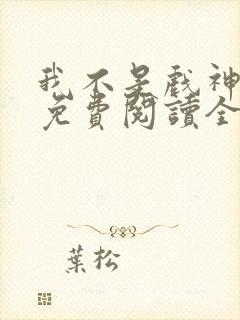 我不是戲神
免費閱讀全
葉松